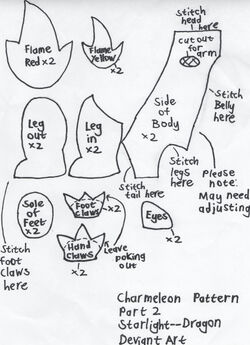 Stitch
head
here
Flame
Red x2
Flame
Yellow
x2
cut out
for
arm
Stitch
Belly
here
Leg
out
x2
Leg
in
x2
Side
of
Body
x2
Stitch
tail here
Stitch
legs
here
Please
note:
May need
adjusting
Sole
of
Feet x2
Foot
claws
x2
Eyes
x2
Stitch
foot
claws
here
Hand
claws
x2
Leave
poking
out
Charmeleon Pattern
Part 2
Starlight--Dragon
Deviant Art